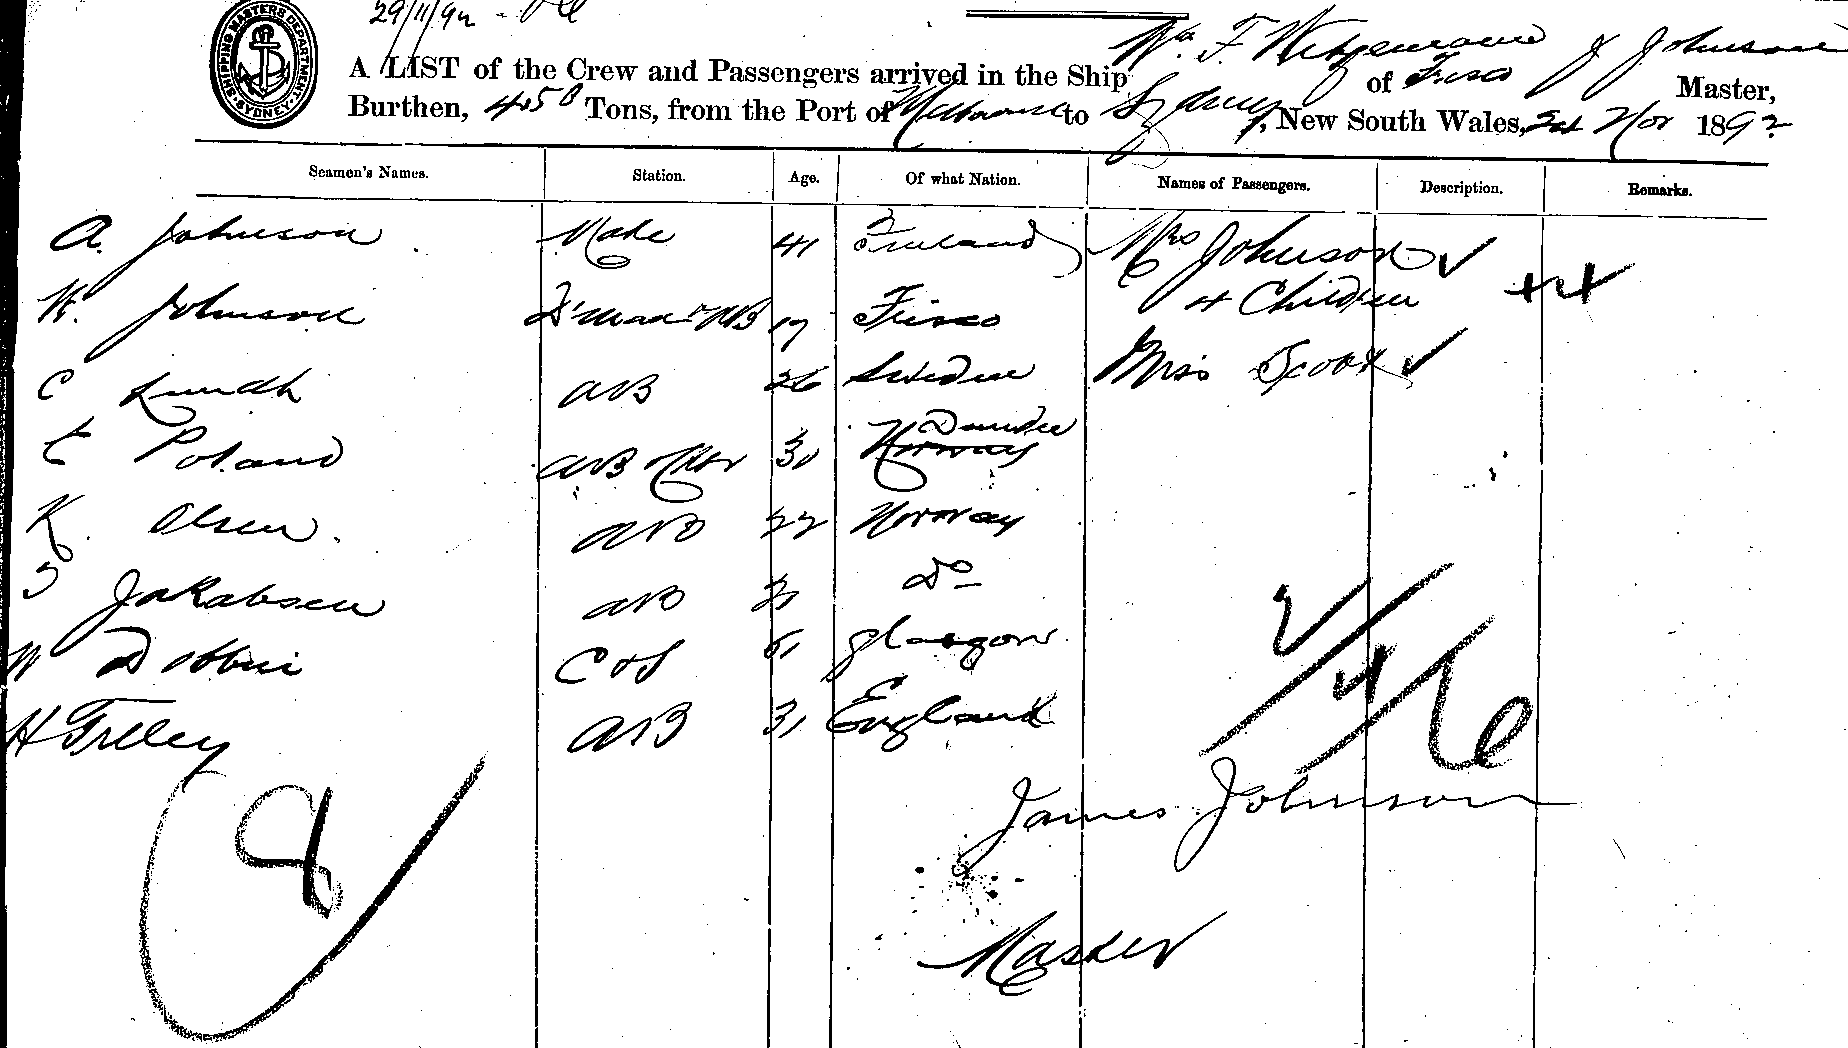 29/11/92
SHIPPING MASTERS DEPARTMENT. SYDNEY.
Wm F. Witzemann J Johnson
A LIST of the Crew and Passengers arrived in the Ship of Frisco Master,
Burthen, 450 Tons, from the Port of Melbourne to Sydney, New South Wales, Nov 1892
Seamen's Names. Station. Age. Of what Nation. Names of Passengers. Description. Remarks.
A. Johnson Mate 41 Finland Mrs Johnson ✓
W. Johnson 17 Frisco 4 Children
C Lundh AB 26 Sweden Miss ✓
Poland AB 30 Norway Dundee
K. Olsen. AB 22 Norway
Jakabsen AB 21 Do
W Dobbie C & S 61 Glasgow
H Trelley AB 31 England
2/4/6
8
James Johnson
Master